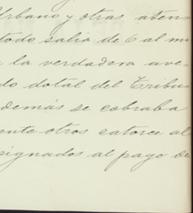 Urbano y otras, aten
todo salia de 6 al mi
a la verdadera ave
do dotal del Tribu
demás se cobraba
ente otros catorce al
signados al pago de